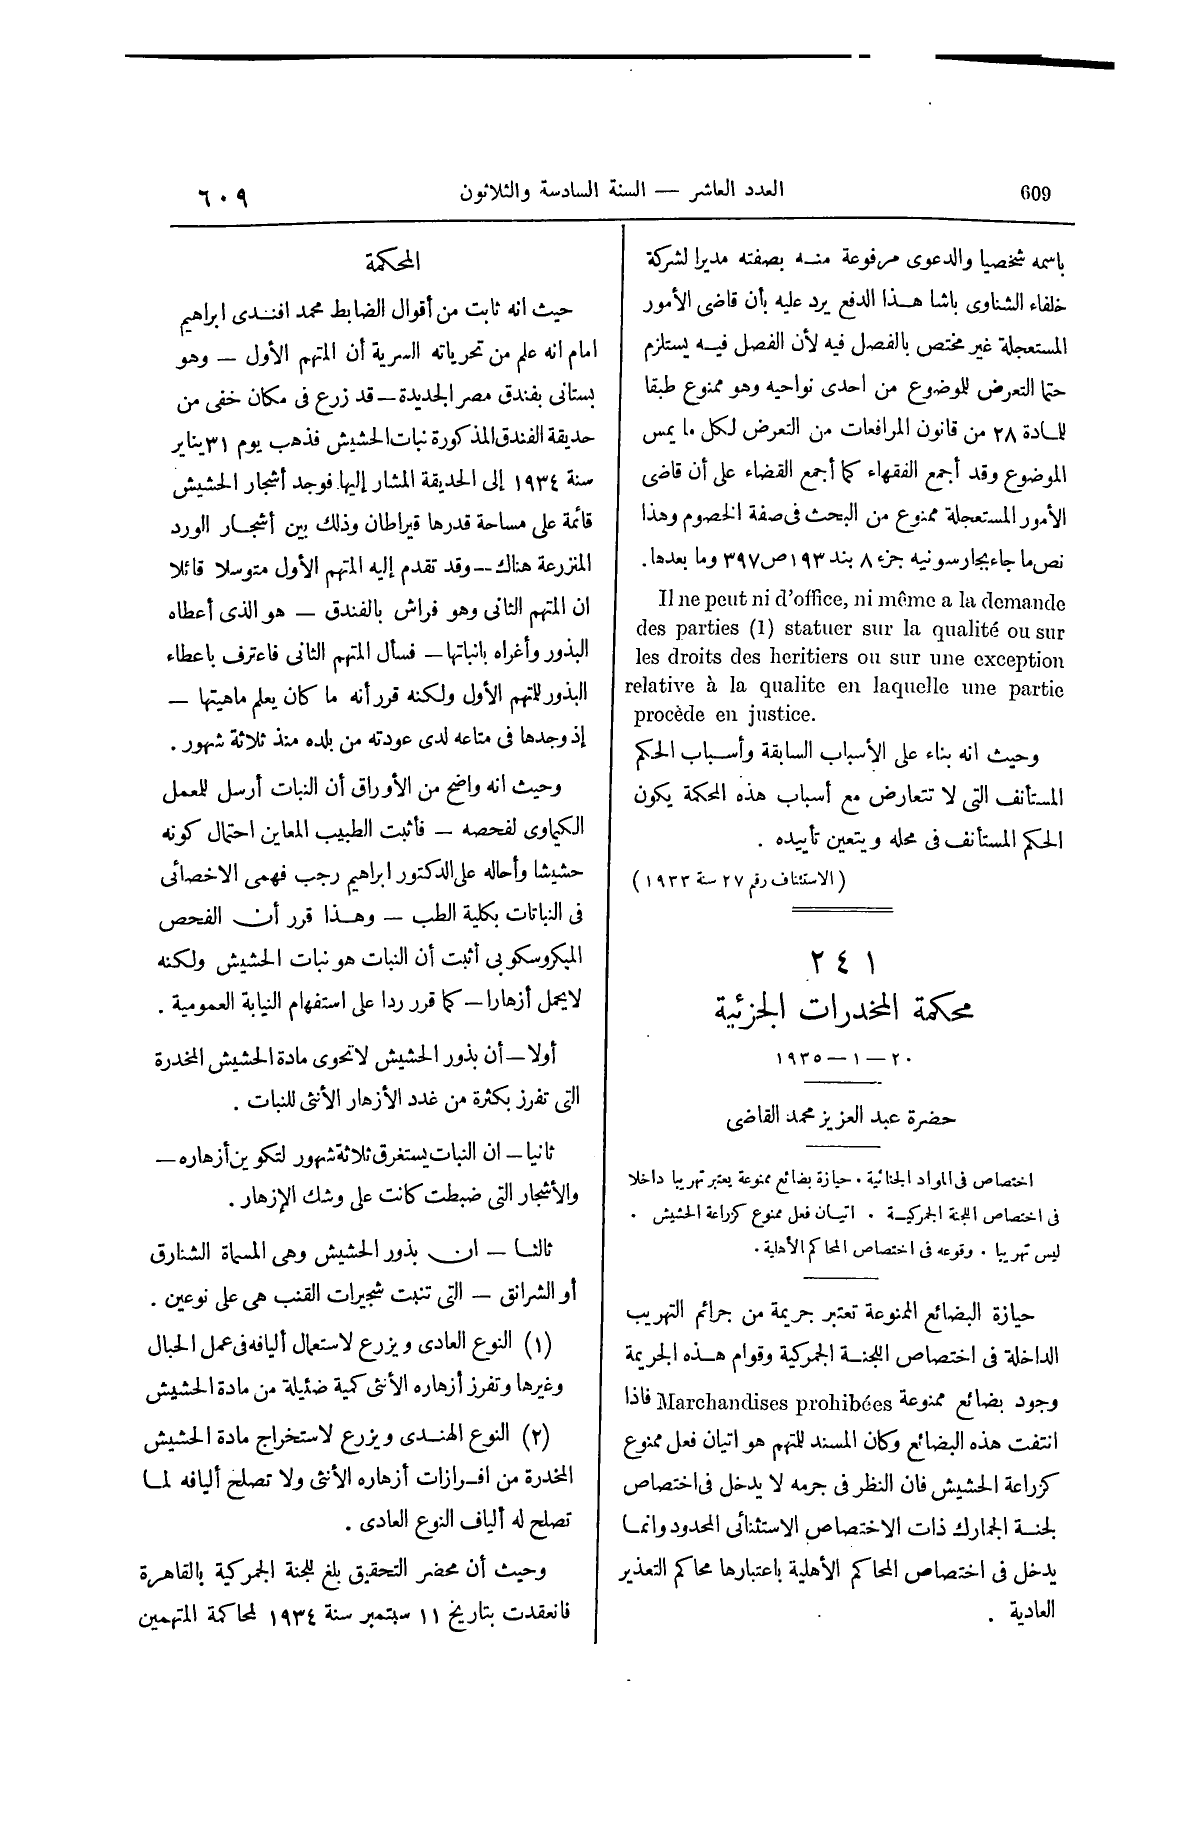 609
العدد العاشر — السنة السادسة والثلاثون
٦٠٩
باسمه شخصيا والدعوى مرفوعة منه بصفته مديرا لشركة
خلفاء الشناوى باشا هذا الدفع يرد عليه بأن قاضى الأمور
المستعجلة غير مختص بالفصل فيه لأن الفصل فيه يستلزم
حتما التعرض للموضوع من احدى نواحيه وهو ممنوع طبقا
للمادة ٢٨ من قانون المرافعات من التعرض لكل ما يمس
الموضوع وقد أجمع الفقهاء كما أجمع القضاء على أن قاضى
الأمور المستعجلة ممنوع من البحث فى صفة الخصوم وهذا
نص ما جاء بجارسونيه جزء ٨ بند ١٩٣ ص ٣٩٧ وما بعدها .
Il ne peut ni d'office, ni même a la demande
des parties (1) statuer sur la qualité ou sur
les droits des heritiers ou sur une exception
relative à la qualite en laquelle une partie
procède en justice.
وحيث انه بناء على الأسباب السابقة وأسباب الحكم
المستأنف التى لا تتعارض مع أسباب هذه المحكمة يكون
الحكم المستأنف فى محله ويتعين تأييده .
( الاستئناف رقم ٢٧ سنة ١٩٣٣ )
٢٤١
محكمة المخدرات الجزئية
٢٠ — ١ — ١٩٣٥
حضرة عبد العزيز محمد القاضى
اختصاص فى المواد الجنائية . حيازة بضائع ممنوعة يعتبر تهريبا داخلا
فى اختصاص اللجنة الجمركية . اتيان فعل ممنوع كزراعة الحشيش .
ليس تهريبا . وقوعه فى اختصاص المحاكم الأهلية .
حيازة البضائع الممنوعة تعتبر جريمة من جرائم التهريب
الداخلة فى اختصاص اللجنة الجمركية وقوام هذه الجريمة
وجود بضائع ممنوعة Marchandises prohibées فاذا
انتفت هذه البضائع وكان المسند للمتهم هو اتيان فعل ممنوع
كزراعة الحشيش فان النظر فى جرمه لا يدخل فى اختصاص
لجنة الجمارك ذات الاختصاص الاستثنائى المحدود وانما
يدخل فى اختصاص المحاكم الأهلية باعتبارها محاكم التعذير
العادية .
المحكمة
حيث انه ثابت من أقوال الضابط محمد افندى ابراهيم
امام انه علم من تحرياته السرية أن المتهم الأول — وهو
بستانى بفندق مصر الجديدة — قد زرع فى مكان خفى من
حديقة الفندق المذكورة نبات الحشيش فذهب يوم ٣١ يناير
سنة ١٩٣٤ إلى الحديقة المشار إليها فوجد أشجار الحشيش
قائمة على مساحة قدرها قيراطان وذلك بين أشجار الورد
المنزرعة هناك — وقد تقدم إليه المتهم الأول متوسلا قائلا
ان المتهم الثانى وهو فراش بالفندق — هو الذى أعطاه
البذور وأغراه بانباتها — فسأل المتهم الثانى فاعترف باعطاء
البذور للمتهم الأول ولكنه قرر أنه ما كان يعلم ماهيتها —
إذ وجدها فى متاعه لدى عودته من بلده منذ ثلاثة شهور .
وحيث انه واضح من الأوراق أن النبات أرسل للمعمل
الكيماوى لفحصه — فأثبت الطبيب المعاين احتمال كونه
حشيشا وأحاله على الدكتور ابراهيم رجب فهمى الاخصائى
فى النباتات بكلية الطب — وهذا قرر أن الفحص
الميكروسكوبى أثبت أن النبات هو نبات الحشيش ولكنه
لا يحمل أزهارا — كما قرر ردا على استفهام النيابة العمومية .
أولا — أن بذور الحشيش لا تحوى مادة الحشيش المخدرة
التى تفرز بكثرة من غدد الأزهار الأنثى للنبات .
ثانيا — ان النبات يستغرق ثلاثة شهور لتكوين أزهاره —
والأشجار التى ضبطت كانت على وشك الإزهار .
ثالثا — ان بذور الحشيش وهى المسماة الشنارق
أو الشرانق — التى تنبت شجيرات القنب هى على نوعين .
(١) النوع العادى ويزرع لاستعمال أليافه فى عمل الحبال
وغيرها وتفرز أزهاره الأنثى كمية ضئيلة من مادة الحشيش
(٢) النوع الهندى ويزرع لاستخراج مادة الحشيش
المخدرة من افرازات أزهاره الأنثى ولا تصلح أليافه لما
تصلح له ألياف النوع العادى .
وحيث أن محضر التحقيق بلغ للجنة الجمركية بالقاهرة
فانعقدت بتاريخ ١١ سبتمبر سنة ١٩٣٤ لمحاكمة المتهمين